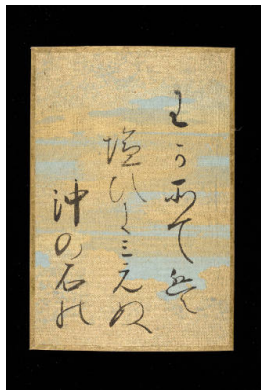 わかそては
塩ひにみえぬ
沖の石の